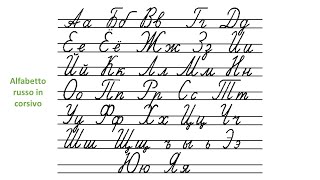 Alfabetto
russo in
corsivo
Аа Бб Вв Гг Дд
Ее Ёё Жж Зз Ии
Йй Кк Лл Мм Нн
Оо Пп Рр Сс Тт
Уу Фф Хх Цц Чч
Шш Щщ ъ ы ь Ээ
Юю Яя